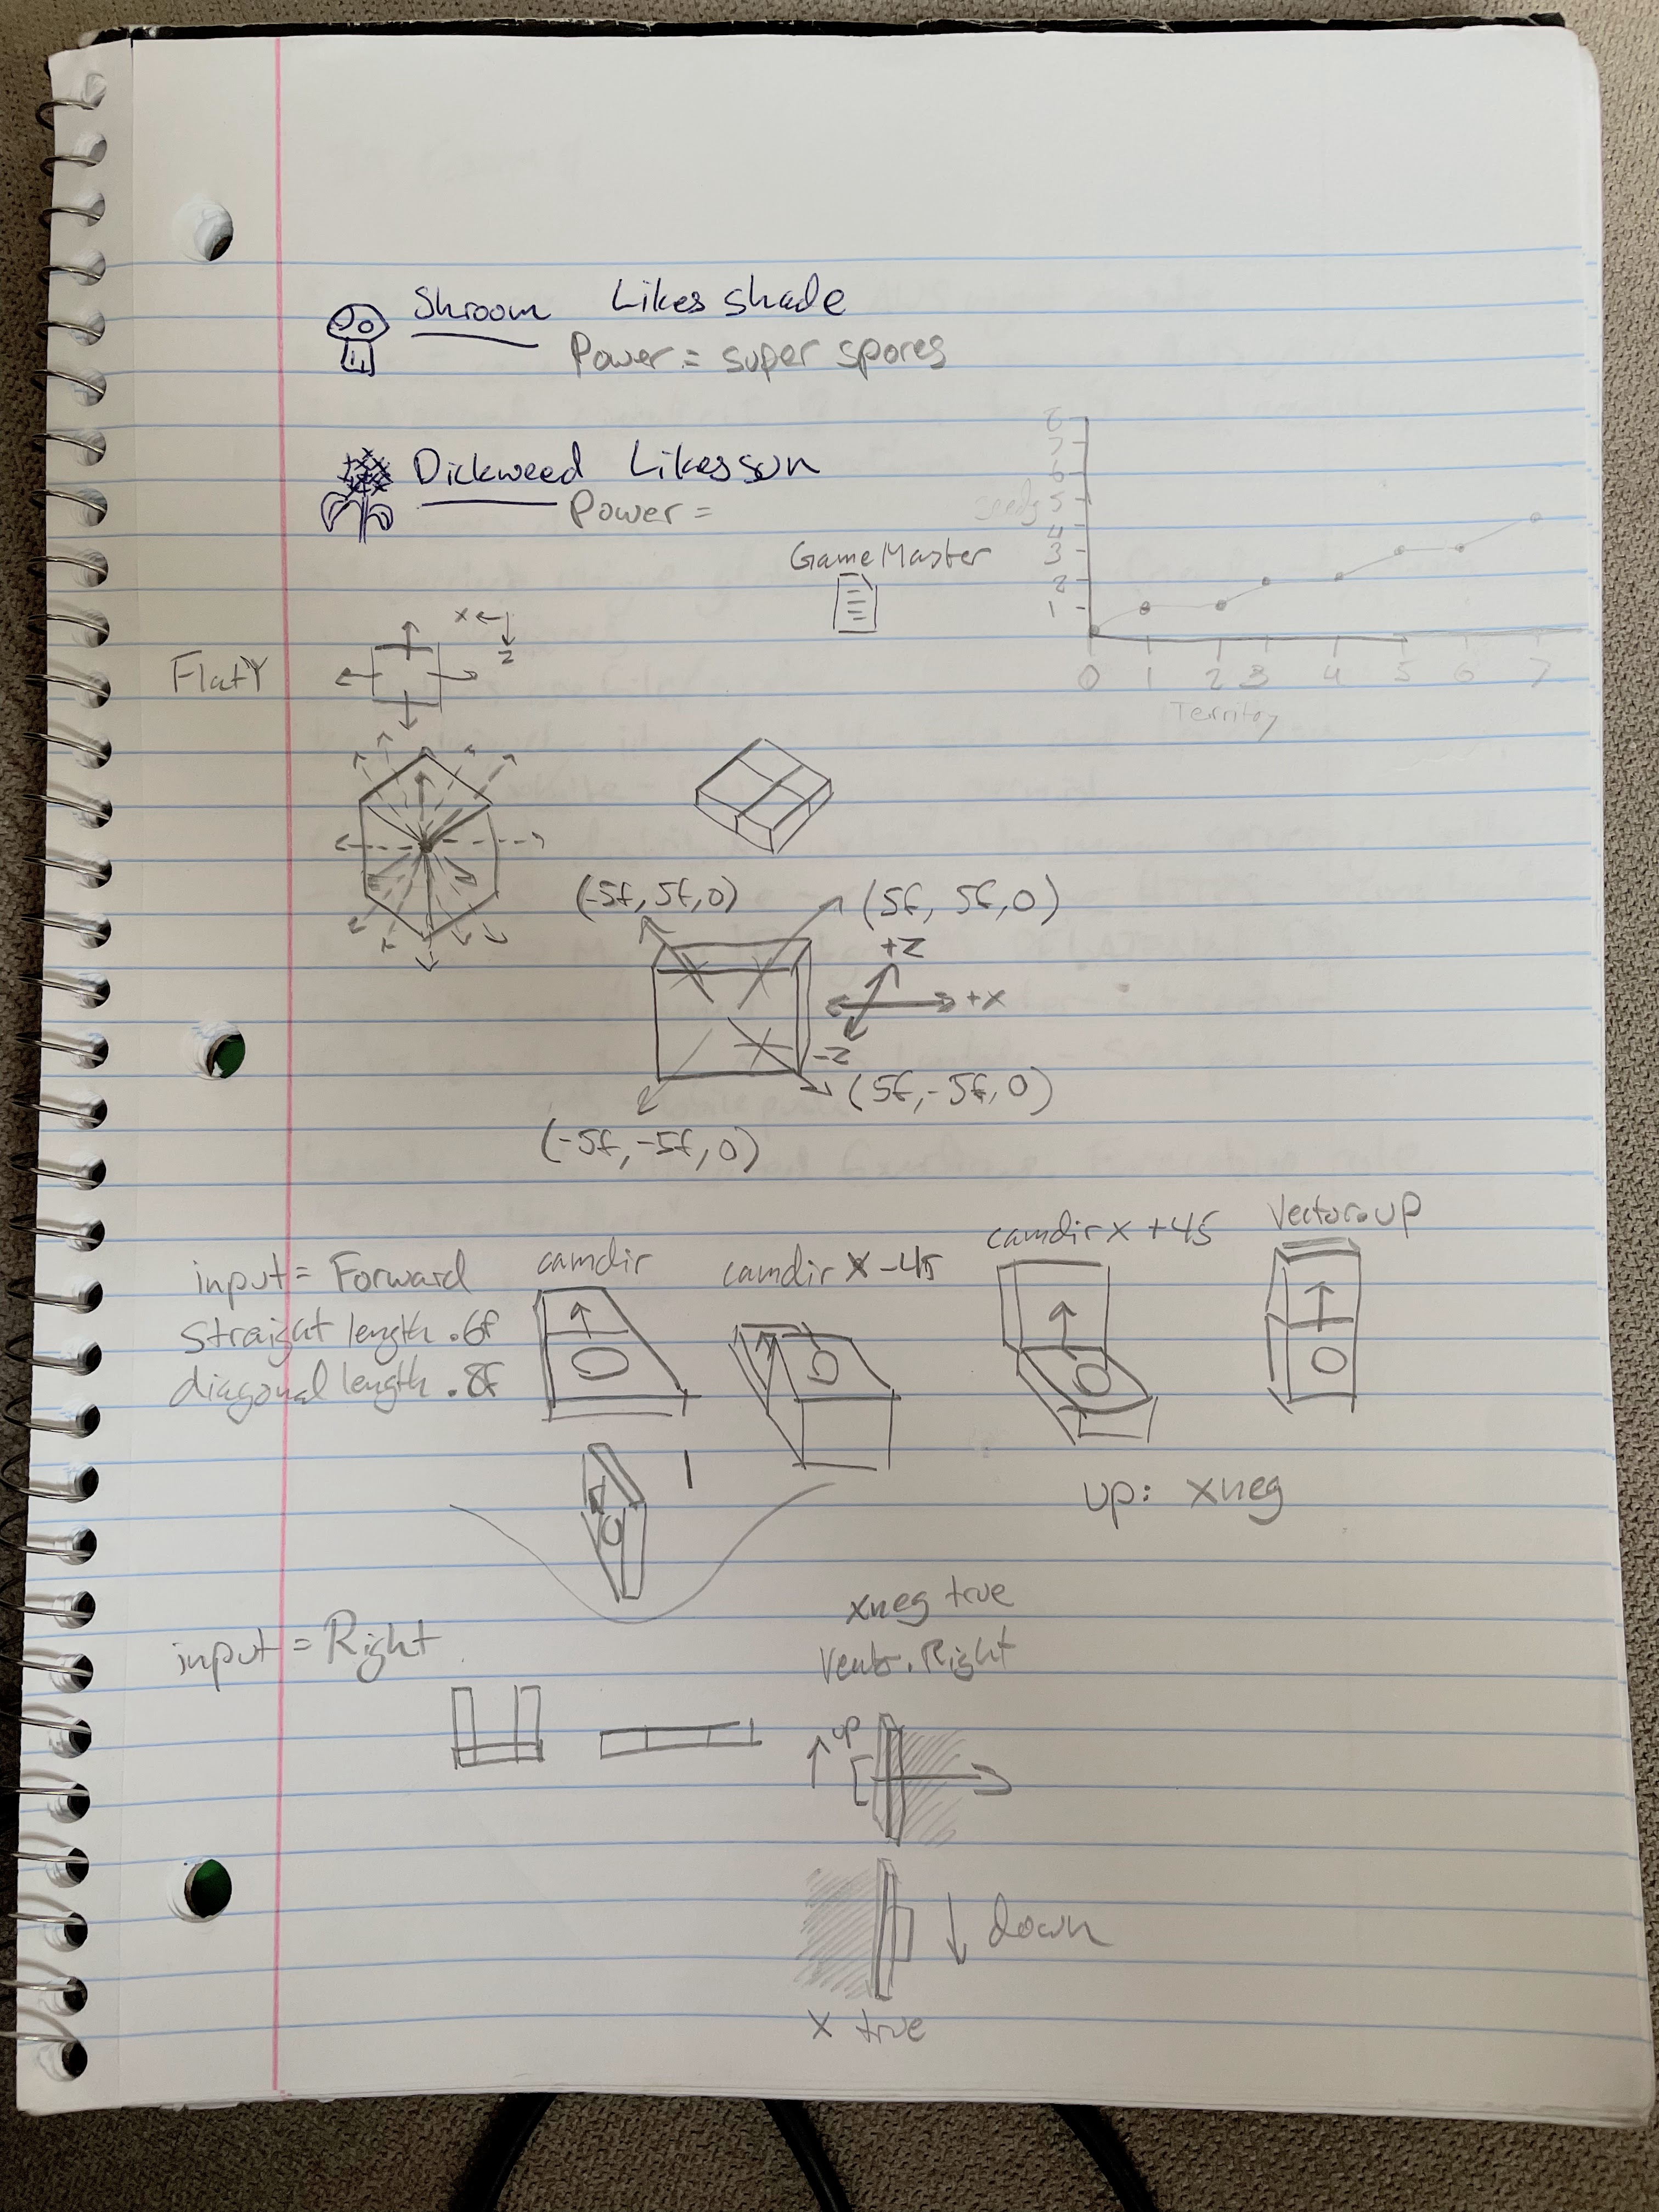 Shroom Likes shade
Power = super spores
Dickweed Likes sun
Power =
GameMaster
8
7
6
seeds 5
4
3
2
1
0 1 2 3 4 5 6 7
Territory
x
z
FlatY
(-5f, 5f, 0)
(5f, 5f, 0)
+z
+x
-z
(5f, -5f, 0)
(-5f, -5f, 0)
input = Forward
Straight length .6f
diagonal length .8f
camdir
camdir x -45
camdir x +45
Vector.up
up: xneg
input = Right
xneg true
Vector.Right
up
down
x true